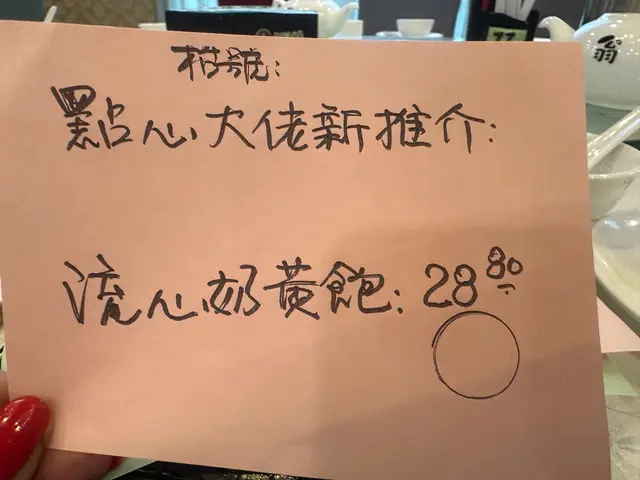 枱號:
點心大佬新推介:
流心奶黃飽: 28 80
翁